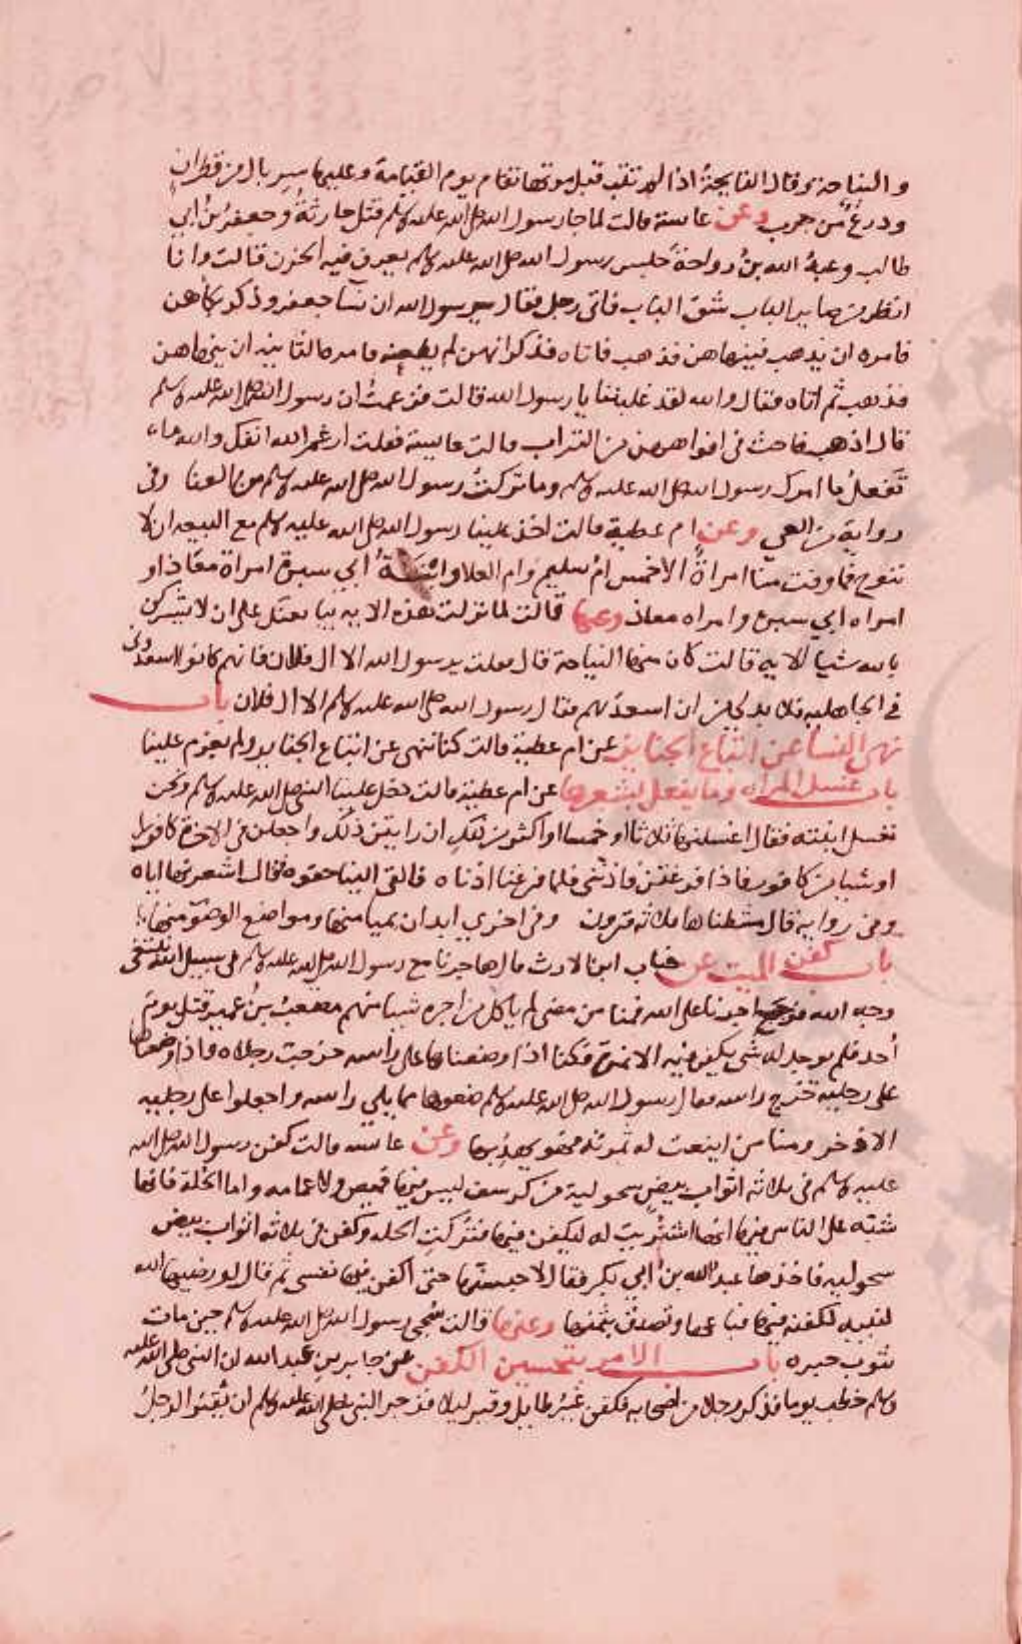 والنياحة وقال النايحة اذا لم تتب قبل موتها تقام يوم القيامة وعليها سربال من قطران
ودرع من جرب وعن عايشة قالت لما جا رسول الله صلى الله عليه وسلم قتل حارثة وجعفر بن ابي
طالب وعبد الله بن رواحة جلس رسول الله صلى الله عليه وسلم يعرف فيه الحزن قالت وانا
انظر من صاير الباب شق الباب فاتى رجل فقال يرسول الله ان نسا جعفر وذكر بكاهن
فامره ان يذهب فينهاهن فذهب فاتاه فذكر انهن لم يطعنه فامره الثانية ان ينهاهن
فذهب ثم اتاه فقال والله لقد غلبننا يا رسول الله قالت فزعمت ان رسول الله صلى الله عليه وسلم
قال اذهب فاحث في افواههن من التراب قالت عايشة فقلت ارغم الله انفك والله ماء
تفعل ما امرك رسول الله صلى الله عليه وسلم وما تركت رسول الله صلى الله عليه وسلم من العنا وفي
رواية من العي وعن ام عطية قالت اخذ علينا رسول الله صلى الله عليه وسلم مع البيعه ان لا
ننوح فما وفت منا امراة الا خمس ام سليم وام العلا وابنة ابي سبرة امراة معاذ او
امراه ابي سبره وامراه معاذ وعنها قالت لما نزلت هذه الايه يبايعنك على ان لا يشركن
بالله شيا الايه قالت كان منها النياحة قال فقلت يرسول الله الا ال فلان فانهم كانوا اسعدوني
في الجاهليه فلا بد لي من ان اسعدهم فقال رسول الله صلى الله عليه وسلم الا ال فلان باب
نهي النسا عن اتباع الجنايز عن ام عطية قالت كنا ننهى عن اتباع الجنايز ولم يعزم علينا
باب غسل المراه وما يفعل بشعرها عن ام عطية قالت دخل علينا النبي صلى الله عليه وسلم ونحن
نغسل ابنته فقال اغسلنها ثلاثا او خمسا او اكثر من ذلك ان رايتن ذلك واجعلن في الاخرة كافورا
او شيا من كافور فاذا فرغتن فاذنني فلما فرغنا اذناه فالقى الينا حقوه فقال اشعرنها اياه
وفي رواية قال مشطناها ثلاثه قرون وفي اخرى ابدان بميامنها ومواضع الوضو منها
باب كفن الميت عن خباب ابن الارت قال هاجرنا مع رسول الله صلى الله عليه وسلم في سبيل الله نبتغي
وجه الله فوجب اجرنا على الله فمنا من مضى لم ياكل من اجره شيا منهم مصعب بن عمير قتل يوم
أحد فلم يوجد له شي يكفن فيه الا نمرة فكنا اذا وضعناها على راسه خرجت رجلاه واذا وضعناها
على رجليه خرج راسه فقال رسول الله صلى الله عليه وسلم ضعوها مما يلي راسه واجعلوا على رجليه
الاذخر ومنا من اينعت له ثمرته فهو يهدبها وعن عايشه قالت كفن رسول الله صلى الله
عليه وسلم في ثلاثه اثواب بيض سحولية من كرسف ليس فيها قميص ولا عمامه واما الحلة فانما
شبه على الناس فيها انها اشتريت له ليكفن فيها فتركت الحله وكفن في ثلاثه اثواب بيض
سحوليه فاخذها عبد الله بن ابي بكر فقال لاحبسنها حتى اكفن فيها نفسي ثم قال لو رضيها الله
لنبيه لكفنه فيها فباعها وتصدق بثمنها وعنها قالت سجي رسول الله صلى الله عليه وسلم حين مات
بثوب حبره باب الامر بتحسين الكفن عن جابر بن عبد الله ان النبي صلى الله عليه
وسلم خطب يوما فذكر رجلا من اصحابه فكفن غير طايل وقبر ليلا فزجر النبي صلى الله عليه وسلم ان يقبر الرجل